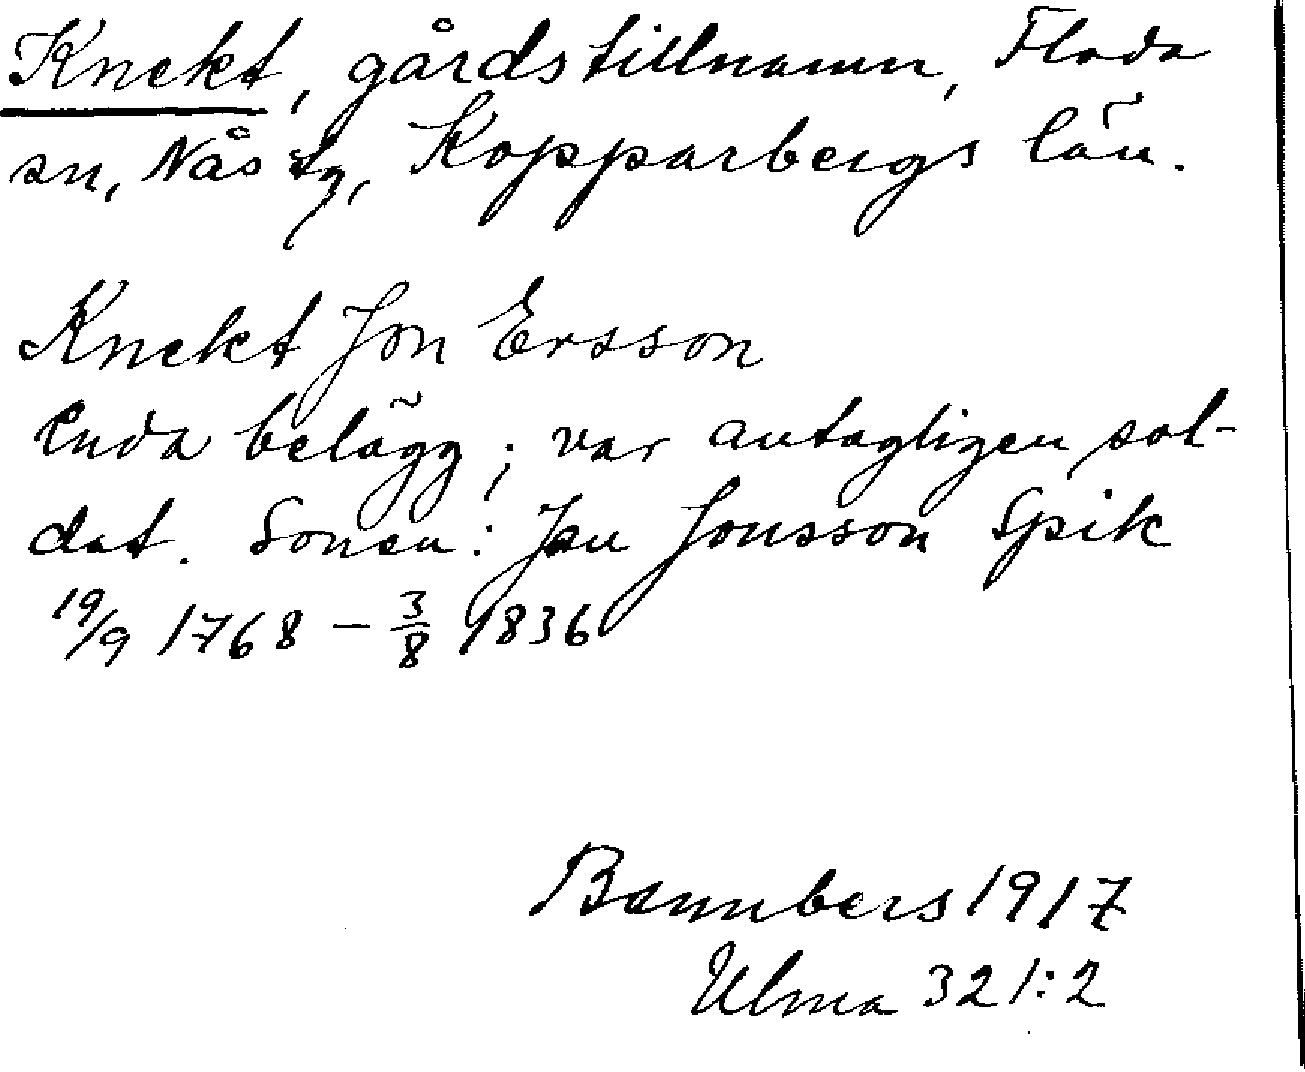 Knekt, gårdstillnamn, Floda
sn, Nås tg, Kopparbergs län.
Knekt Jon Ersson
Enda belägg; var antagligen sol-
dat. Sonen: Jon Jonsson Spik
19/9 1768 – 3/8 1836
Bannbers 1917
Ulma 321:2